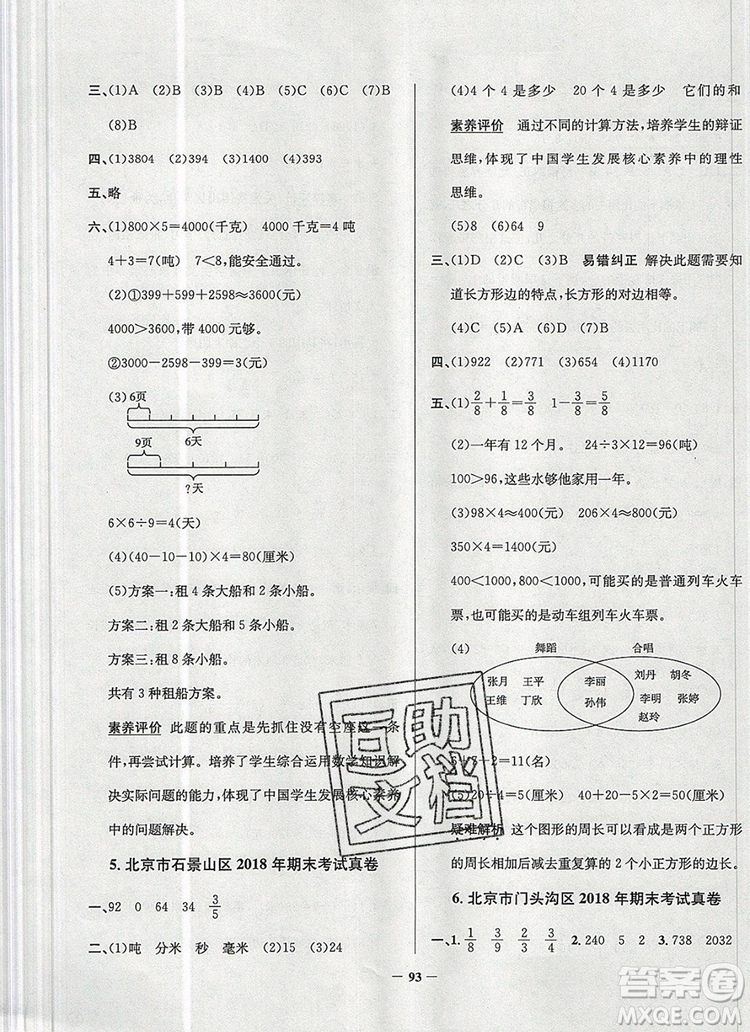 三、(1)A (2)B (3)B (4)B (5)C (6)A (7)B
(8)B
四、(1)3804 (2)394 (3)1400 (4)393
五、略
六、(1)800×5=4000(千克) 4000千克=4吨
4+3=7(吨) 7<8,能安全通过。
(2)①399+599+2598≈3600(元)
4000>3600,带4000元够。
②3000-2598-399=3(元)
(3)
6页
6天
9页
?天
6×6÷9=4(天)
(4)(40-10-10)×4=80(厘米)
(5)方案一:租4条大船和2条小船。
方案二:租2条大船和5条小船。
方案三:租8条小船。
共有3种租船方案。
素养评价 此题的重点是先抓住没有空座这一条
件,再尝试计算。培养了学生综合运用数学知识解
决实际问题的能力,体现了中国学生发展核心素养
中的问题解决。
5.北京市石景山区2018年期末考试真卷
一、92 0 64 3/5
二、(1)吨 分米 秒 毫米 (2)15 (3)24
(4)4个4是多少 20个4是多少 它们的和
素养评价 通过不同的计算方法,培养学生的辩证
思维,体现了中国学生发展核心素养中的理性
思维。
(5)8 (6)64 9
三、(1)D (2)D (3)B 易错纠正 解决此题需要知
道长方形边的特点,长方形的对边相等。
(4)C (5)A (6)D (7)B
四、(1)922 (2)771 (3)654 (4)1170
五、(1)2/8+1/8=3/8 1-3/8=5/8
(2)一年有12个月。 24÷3×12=96(吨)
100>96,这些水够他家用一年。
(3)98×4≈400(元) 206×4≈800(元)
350×4=1400(元)
400<1000,800<1000,可能买的普通列车火车
票,可能买的是动车组列车火车票。
(4)
舞蹈 合唱
张月 王平 李丽 刘丹 胡冬
王维 丁欣 孙伟 李明 张婷
赵玲
6+7-2=11(名)
(5)20÷4=5(厘米) 40+20-5×2=50(厘米)
疑难解析 这个图形的周长可以用两个正方形
的周长相加后减去重复的2个小正方形的边长。
6.北京市门头沟区2018年期末考试真卷
一、1. 1/8 4/9 3/10 2.240 5 2 3.738 2032
互助
文档
93
答案圈
MXQE.COM